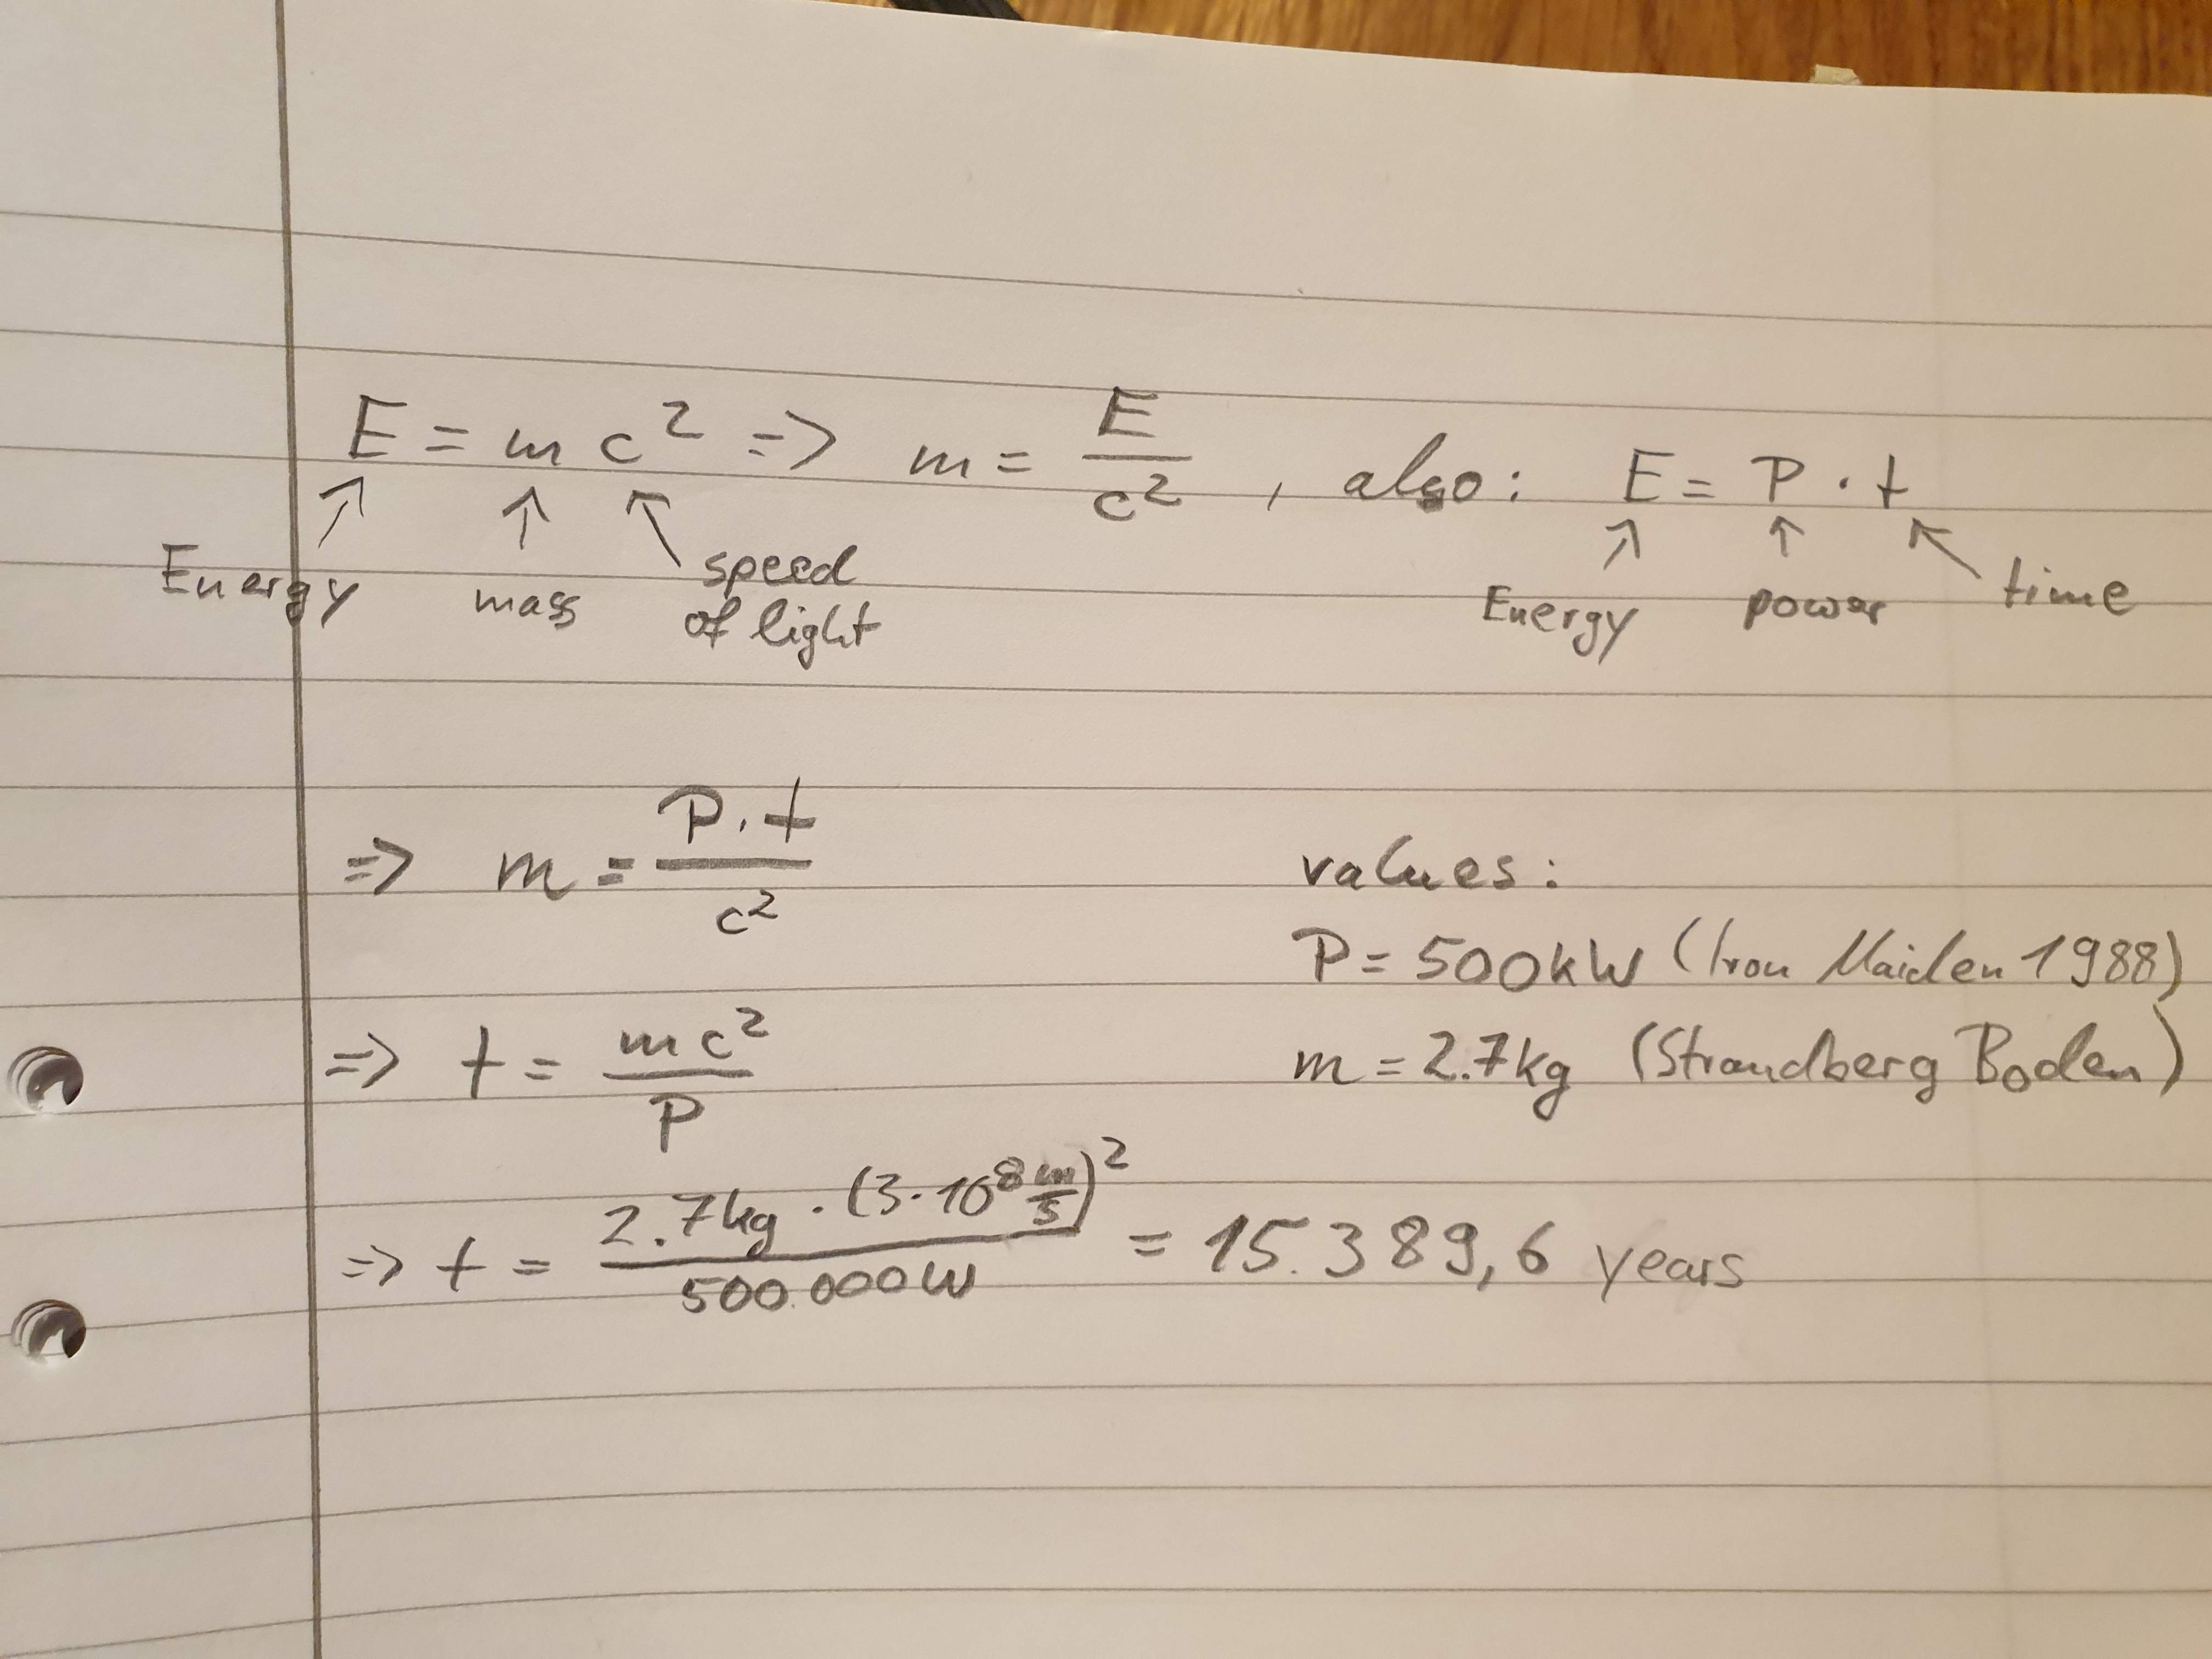 E = mc² => m = E/c², also: E = P · t
Energy mass speed of light Energy power time
=> m = P·t/c²
values:
P = 500kW (Iron Maiden 1988)
=> t = mc²/P
m = 2.7kg (Strandberg Boden)
=> t = 2.7kg · (3·10⁸ m/s)²/500.000W = 15.389,6 years